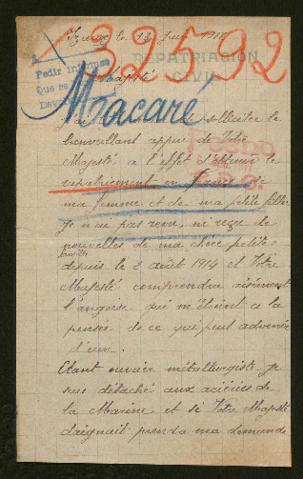 le 13 Juin 1916
REPATRIACION
CIVIL
132592
Pedir informes
Que se
Majesté
Macaré
J'ai solliciter le
bienveillant appui de Votre
Majesté a l'effet d'obtenir le
repatriement en France de
ma femme et de ma petite fille.
Je n'ai pas revu, ni reçu de
nouvelles de ma chère petite
famille
depuis le 2 août 1914 et Votre
Majesté comprendra aisément
l'angoisse qui m'étreint a la
pensée de ce qui peut advenir
d'eux.
Etant ouvrier métallurgiste je
suis détaché aux aciéries de
la Marine et si Votre Majesté
daignait prendre ma demande